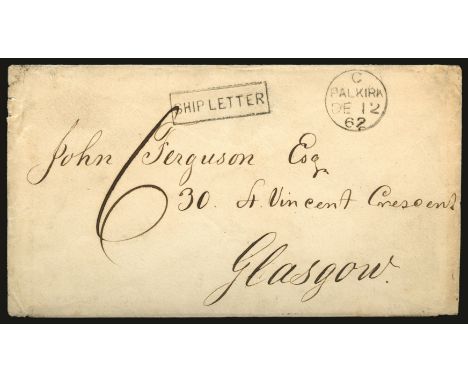 SHIP LETTER
C
FALKIRK
DE 12
62
6
John Ferguson Esq
30. St. Vincent Crescent
Glasgow.